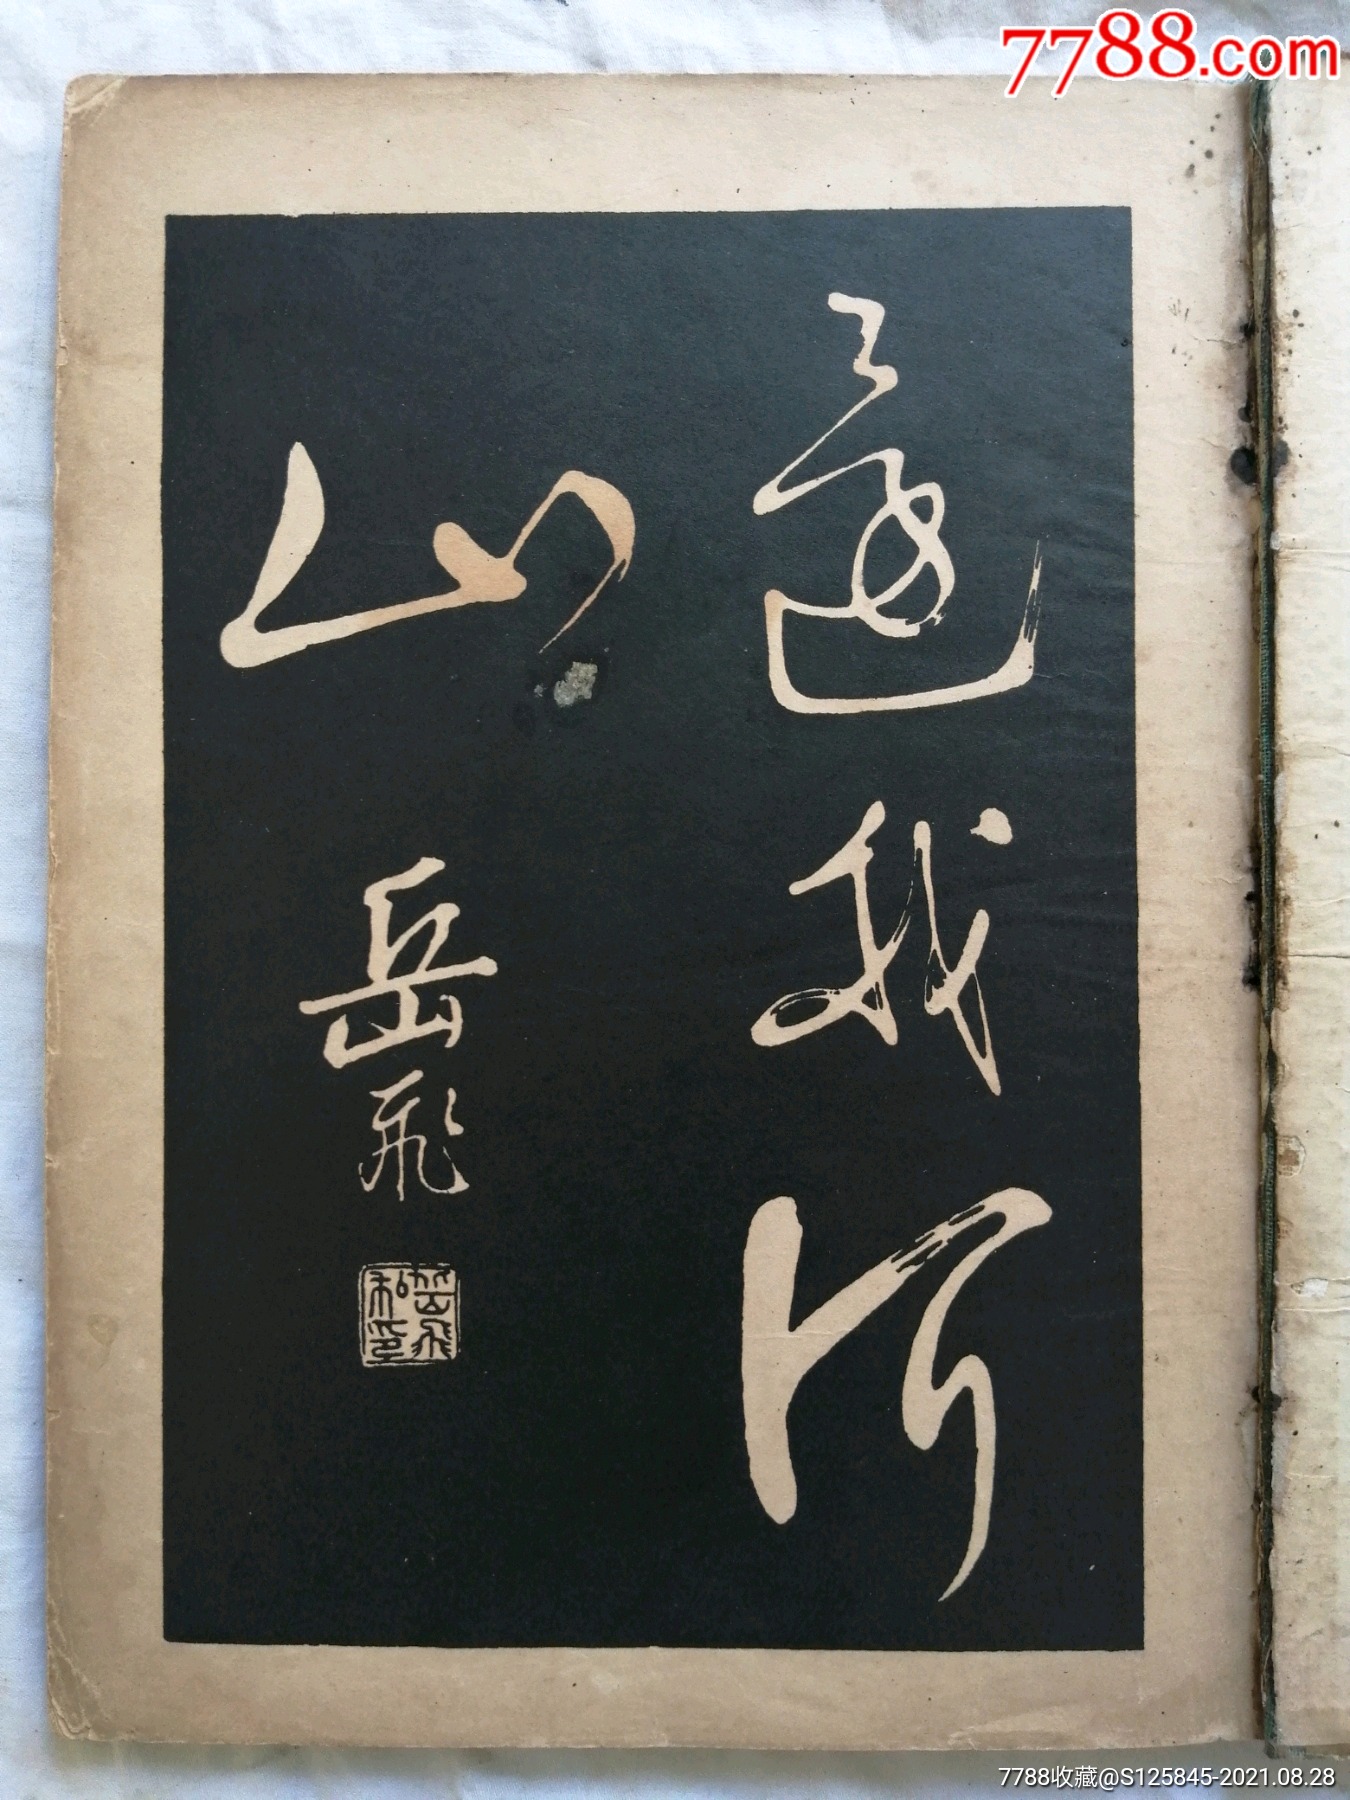 7788.com
還我河
山
岳飛
岳飛私印
7788收藏@S125845-2021.08.28